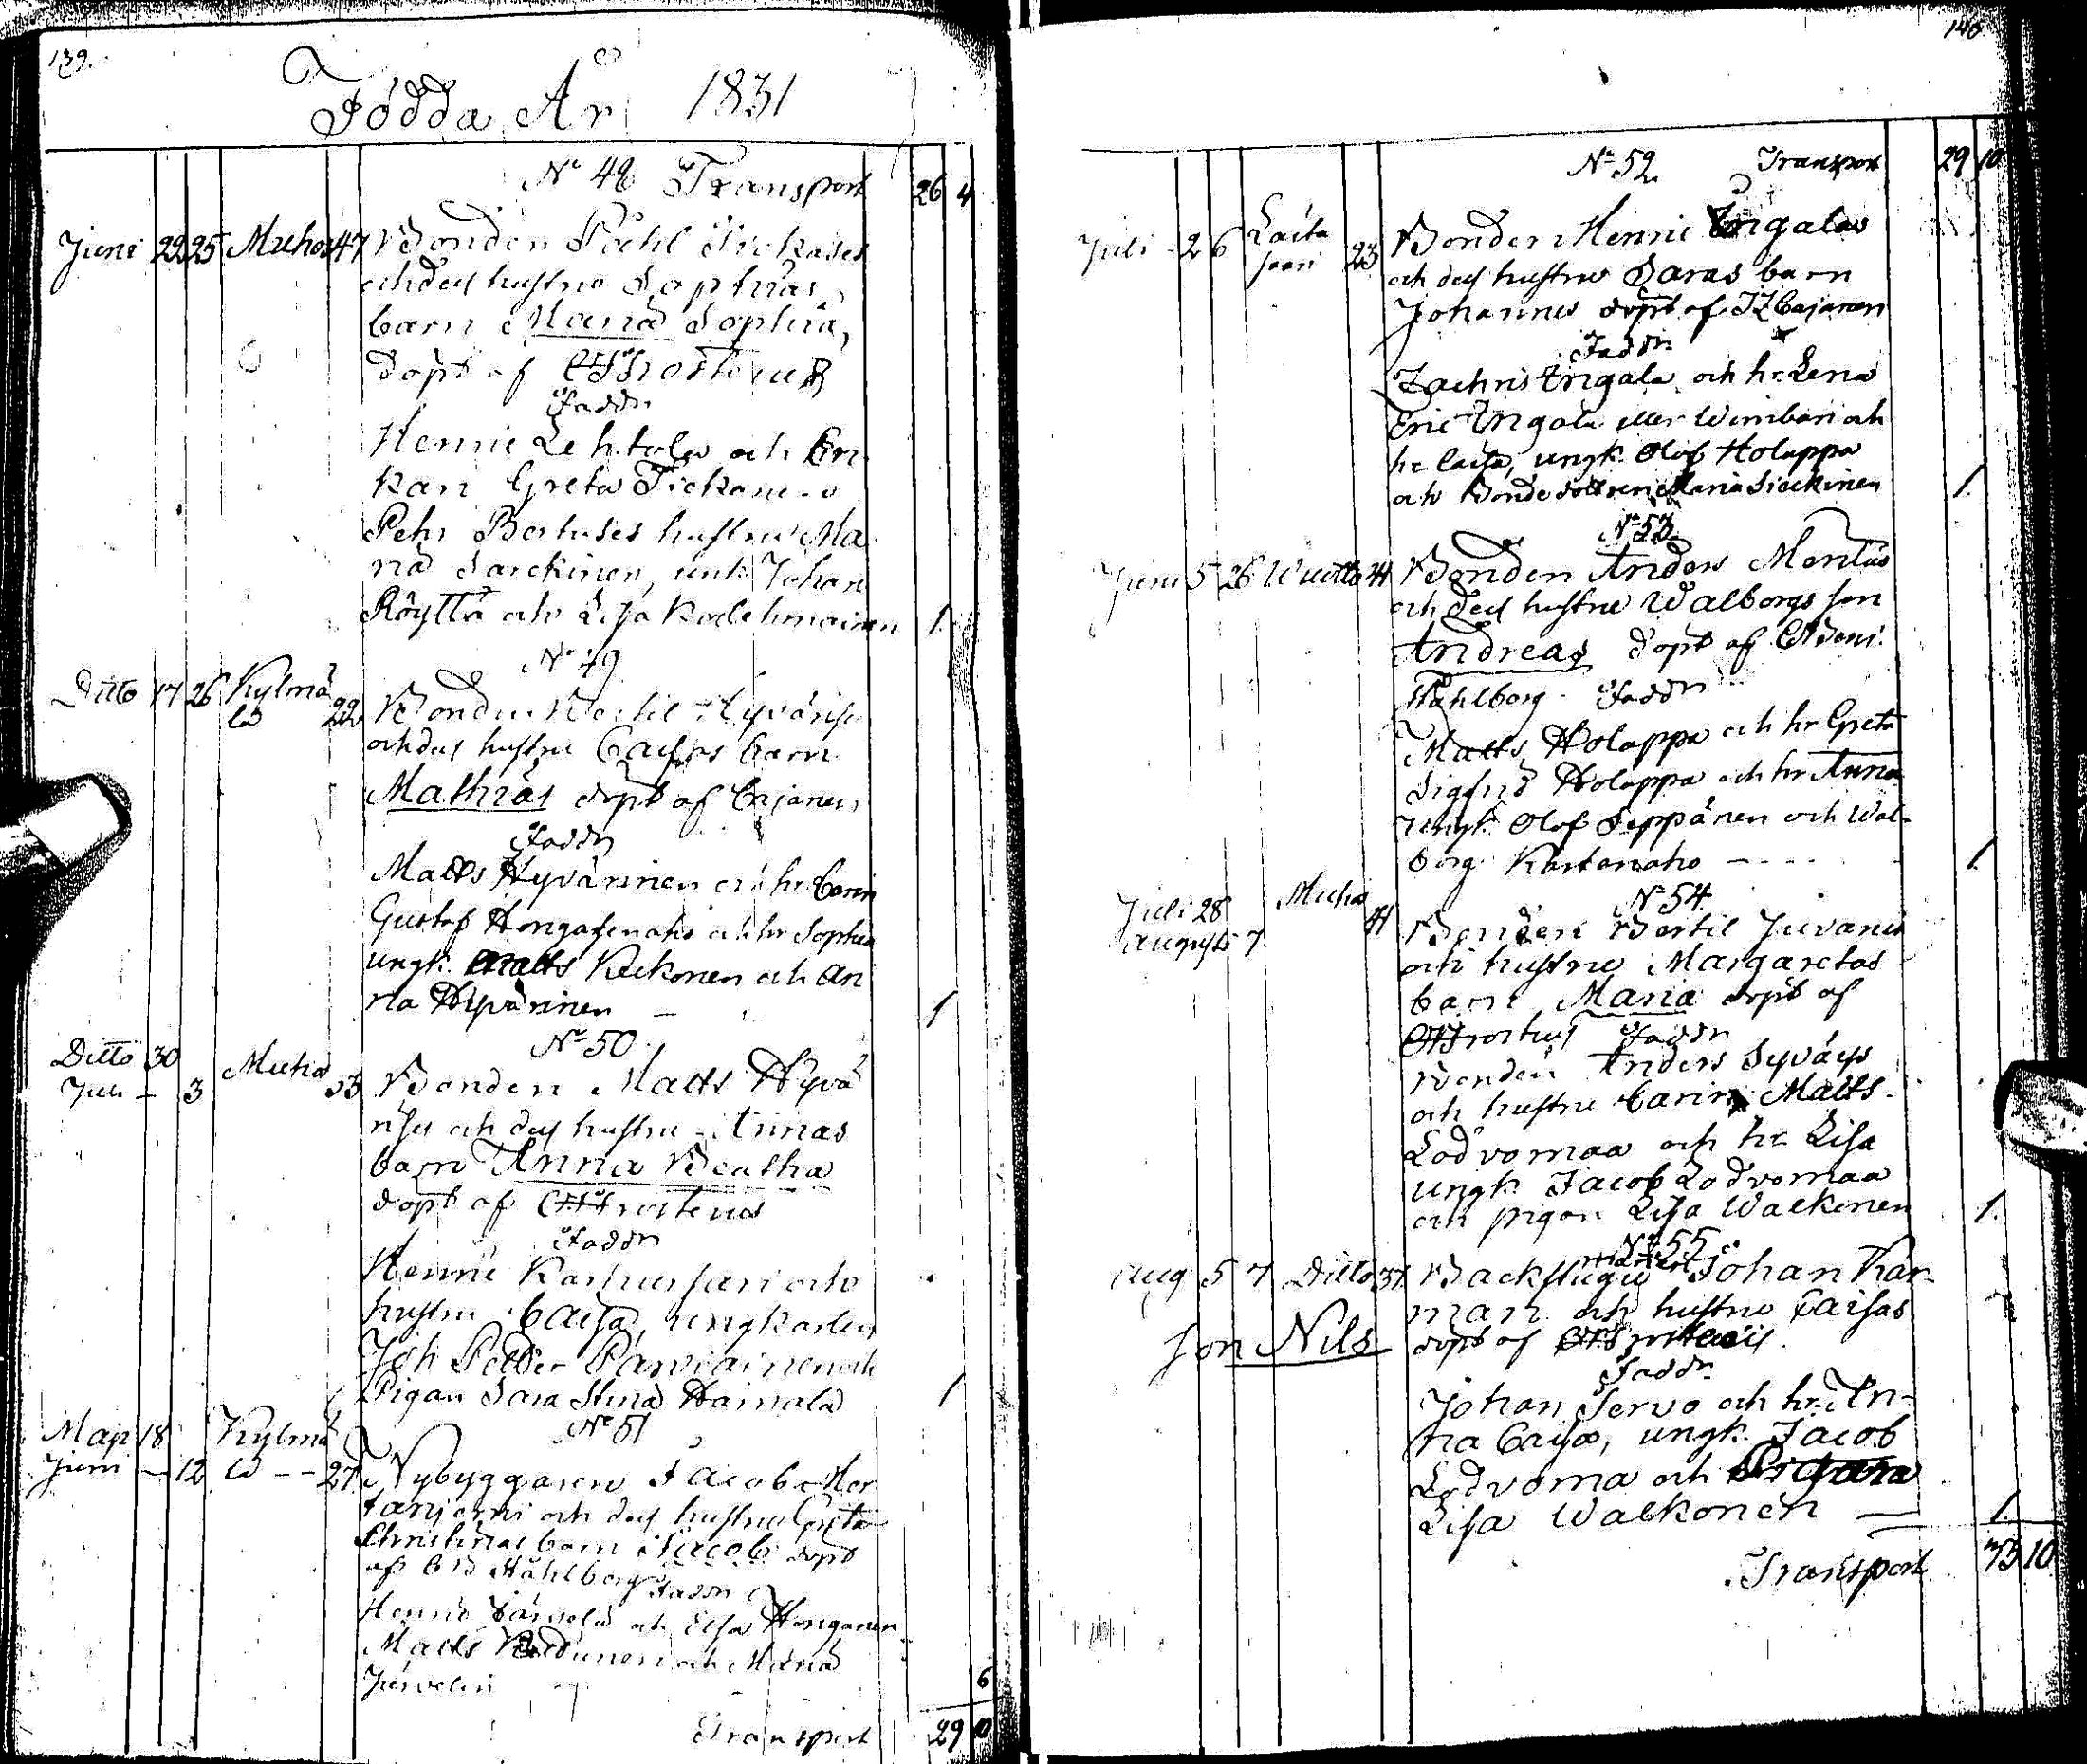 139.
Födda År 1831
No 48 Transport 26 4
Juni 22 25 Muhos 47 Bonden Påhl Tickases
och dess hustru Sophias
barn Maria Sophia,
döpt af Frosterus
Faddr
Henric Lehtola och En
kan Greta Tickane
Pehr Bertuses hustru Ma
ria Sarckinen, unk. Johan
Röyttä och Lisa Koclehmainen 1.
No 49
Ditto 17 26 Kylmä
lä 22 Bonden Bertil Hyvärises
och dess hustru Caisas barn
Mathias döpt af Cajanus
Faddr
Matts Hyvärinen och hr Carin
Gustaf Hongasenaho och hr Sophia
ungk. Matts Keckonen och An
na Hyvärinen – 1
No 50.
Ditto 30 Muhos
Juli – 3 53 Bonden Matts Hyvä
rises och dess hustru Annas
barn Anna Beatha
döpt af Frosterus
Faddr
Henric Karhusaari och
hustru Caisa, ungkarlen
Joh Petter Parviainen och
Pigan Sara Stina Hainala 1
No 51
Maji 18 Kylmä
Juni – 12 lä – – 27 Nybyggaren Jacob Mer
tanjerfvi och dess hustru Greta
Christinas barn Jacob döpt
af Ståhlberg Faddr
Henric Järvelä och Elsa Honganen
Matts och Maria
Järvelin 6
Transport 29 10
140
No 52 Transport 29 10
Juli – 2 6 Laita
saari 23 Bonden Henric Ingalas
och dess hustru Saras barn
Johannes döpt af J Z Cajanen
Faddr
Zachris Ingala och hr Lena
Eric Ingala eller och
hr Caisa, ungk. Olof Holappa
och Bonde dottren Maria Sieckinen 1.
No 53
Juni 5 26 Wuotto 44 Bonden Anders Mentus
och dess hustru Walborgs son
Andreas döpt af
Ståhlberg. Faddr
Matts Holappa och hr Greta
Sigfrid Holappa och hr Anna
Ungk. Olof Seppänen och Wal-
borg Kärtenaho – – – – 1.
Juli 28 Muhos No 54.
Augusti 7 41 Bonden Bertil Juvanes
och hustru Margaretas
barn Maria döpt af
Frosterus Faddr
Bonden Anders Syväys
och hustru Carin, Matts
Lodvomaa och hr Lisa
ungk. Jacob Lodvomaa
och pigan Lisa Walkonen 1.
No 55
Aug 5 7 Ditto 37 Backstugu Johan Kär-
man och hustru Caisas
son Nils döpt af Frosterus.
Faddr
Johan Servo och hr An-
na Caisa, ungk. Jacob
Lodvoma och Pigan
Lisa Walkonen – 1.
Transport 33 10